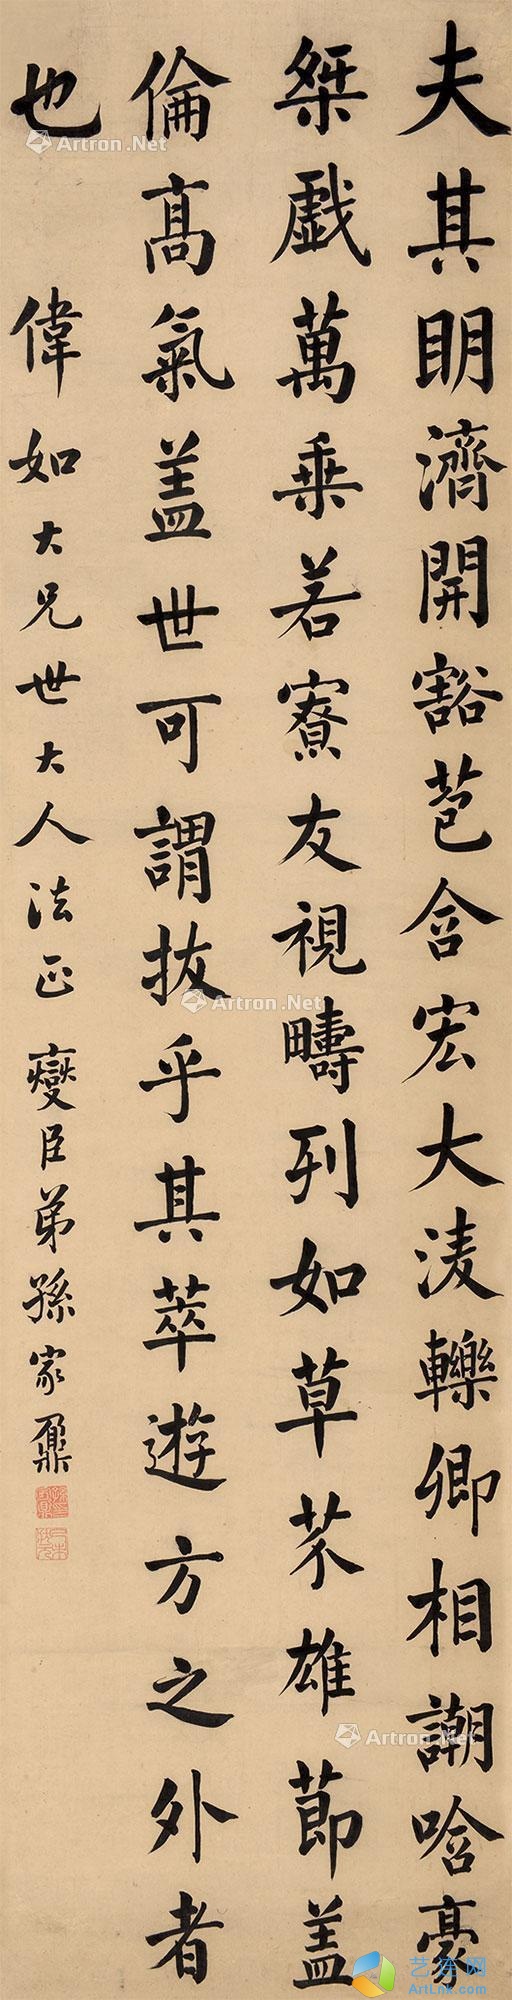 夫其明濟開豁苞含宏大淩轢卿相謿哈豪
桀戲萬乗若寮友視疇列如草芥雄節盖
倫髙氣盖世可謂拔乎其萃遊方之外者
也 偉如大兄世大人法正 燮臣弟孫家鼐
Artron.Net
Artron.Net
Artron.Net
艺连网
ArtLnk.Com